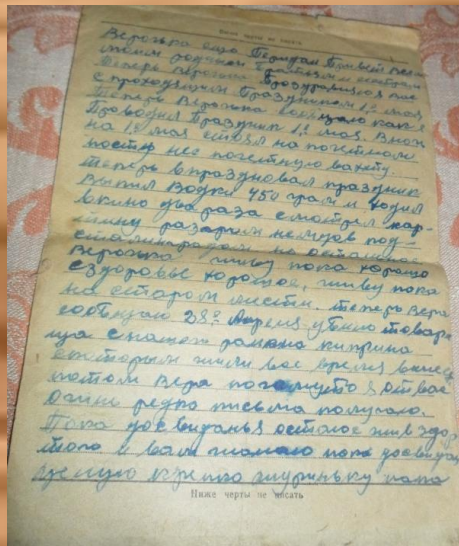 Выше черты не писать
Верочька еще Передам Привет всем
моим родным Братьям и сестрам
Теперь Верочька Проздравляю вас
с проходящим Праздником 1го мая
Теперь Верочька сообщаю как я
Проводил Праздник 1го мая. В ночь
на 1е мая стоял на почетном
посту нес почетную вахту.
теперь праздновал праздник
выпил водки 450 грам и ходил
в кино два раза смотрел кар-
тину разгром немцов под
сталинградом
Верочька живу пока хорошо
здоровье хорошое, живу пока
на старом месте. теперь Вера
сообщаю 28го Апреля убило товари
ща
с которым жили все время вместе
потом Вера почемуто я от вас
очинь редко письма получаю.
Пока досвиданья остаюс жив здор
того и вам желаю пока досвидан
целую крепко пока
Ниже черты не писать